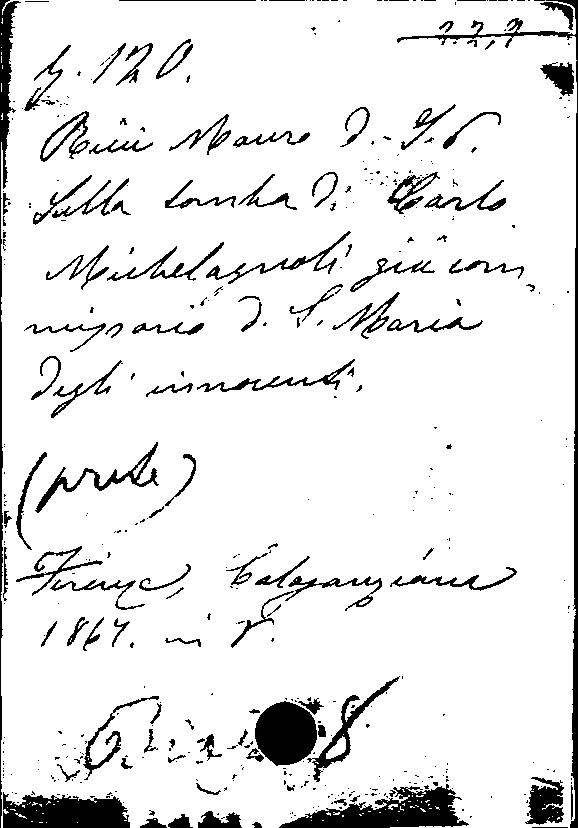 y. 120.
Ricci Mauro d. S. P.
Sulla tomba di Carlo
Michelagnoli già com,
missario d. S. Maria
degli innocenti.
(prose)
Firenze, Calasanziana
1867. in 8.
8.